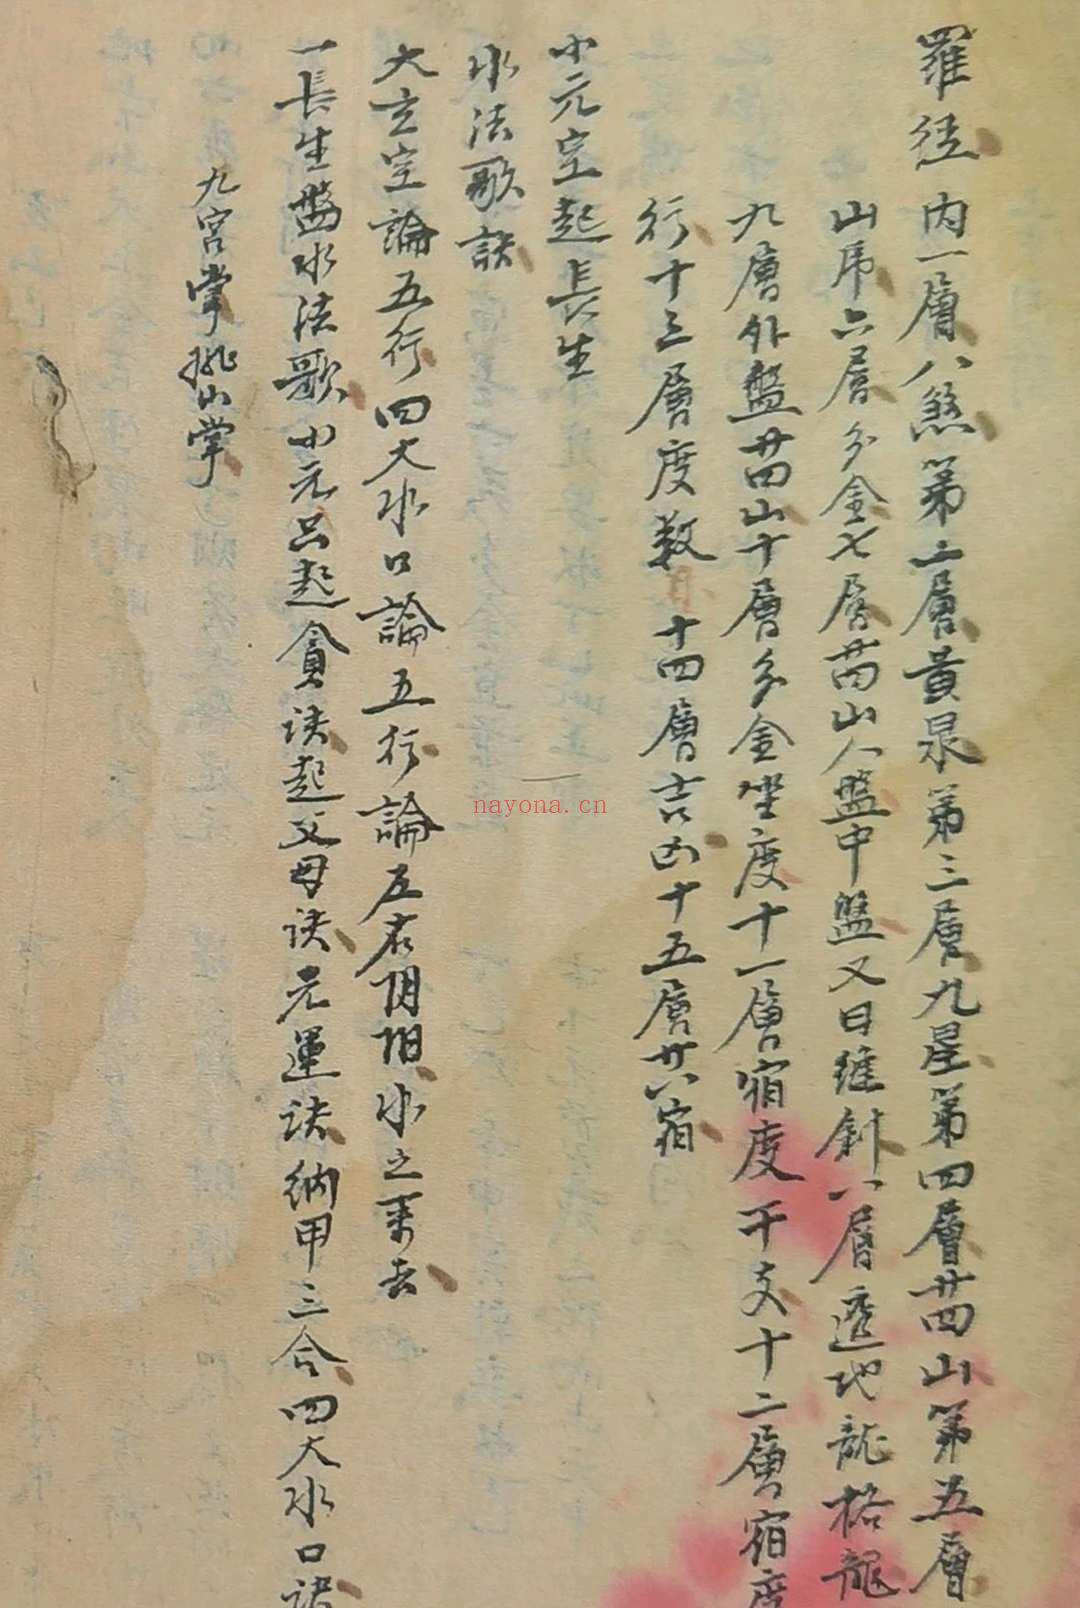 羅経内一層八煞第二層黃泉第三層九星第四層廿四山第五層
山虎六層分金七層廿四山人盤中盤又曰縫針八層透地龍格龍
九層外盤廿四山十層分金坐度十一層宿度干支十二層宿度
行十三層度数 十四層吉凶十五層廿八宿
小元空起長生
水法歌訣
大玄空論五行四大水口論五行論左右阴阳水之来去
一長生盤水法歌 元 起貪訣起父母訣元運訣納甲三合四大水口訣
九宮掌排山掌
nayona.cn